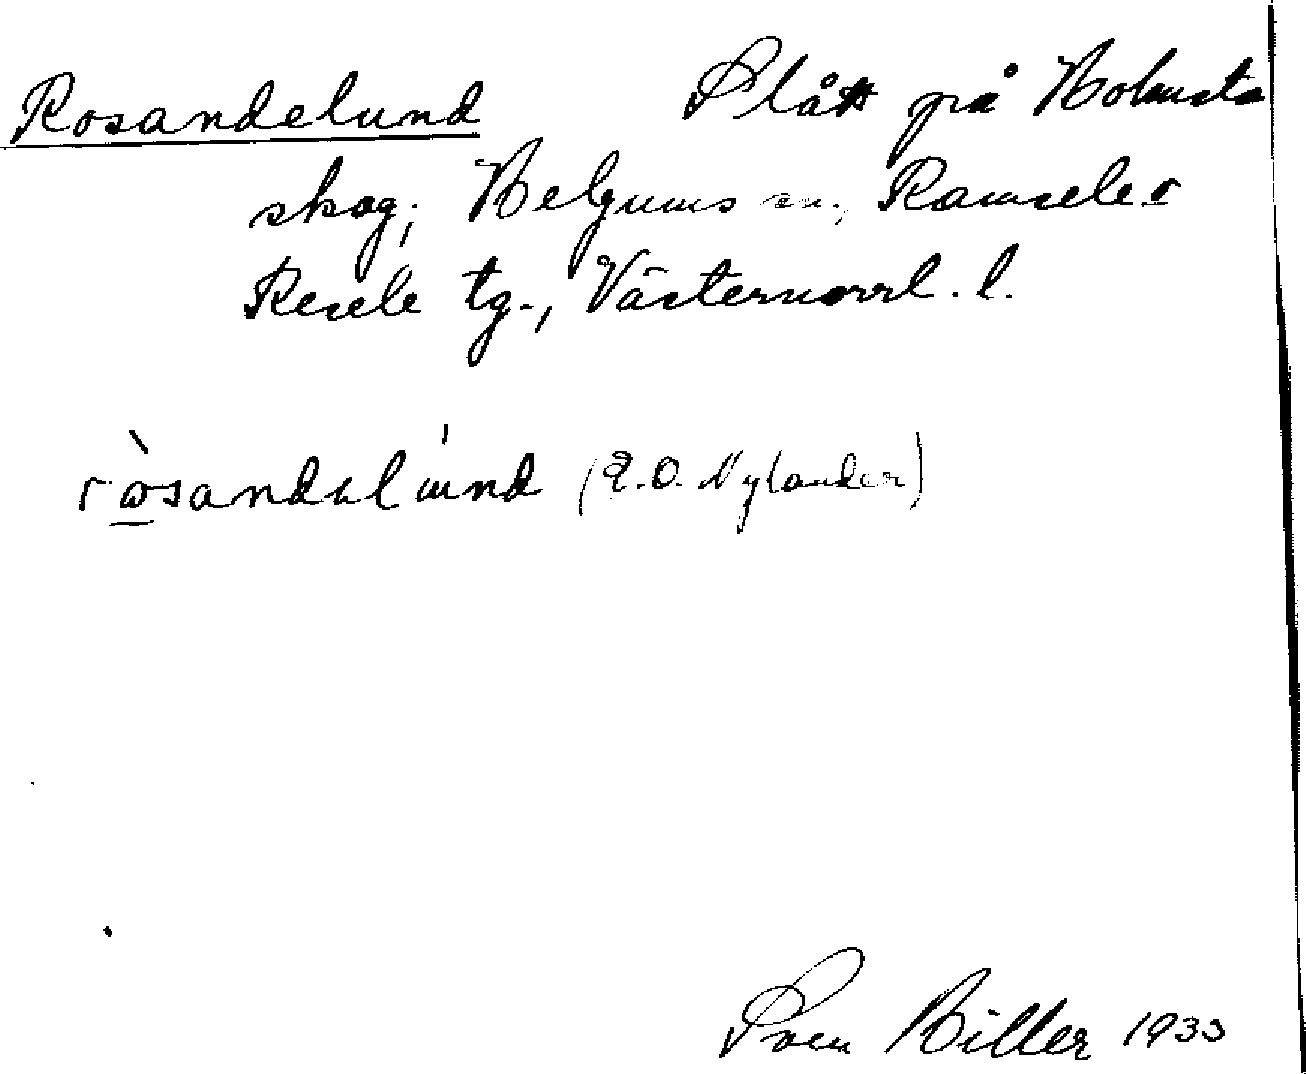 Rosandelund Slått på Bolmsta
skog, Helgums sn., Ramsele o
Resele tg., Västernorrl. l.
rɷ̀sandəlɯ́nd (E.O. Nylander)
Sven Biller 1933